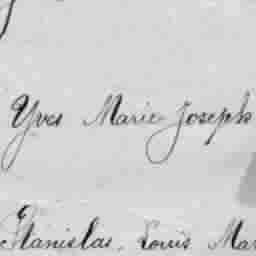 Yves Marie Joseph
Stanislas, Louis Mar